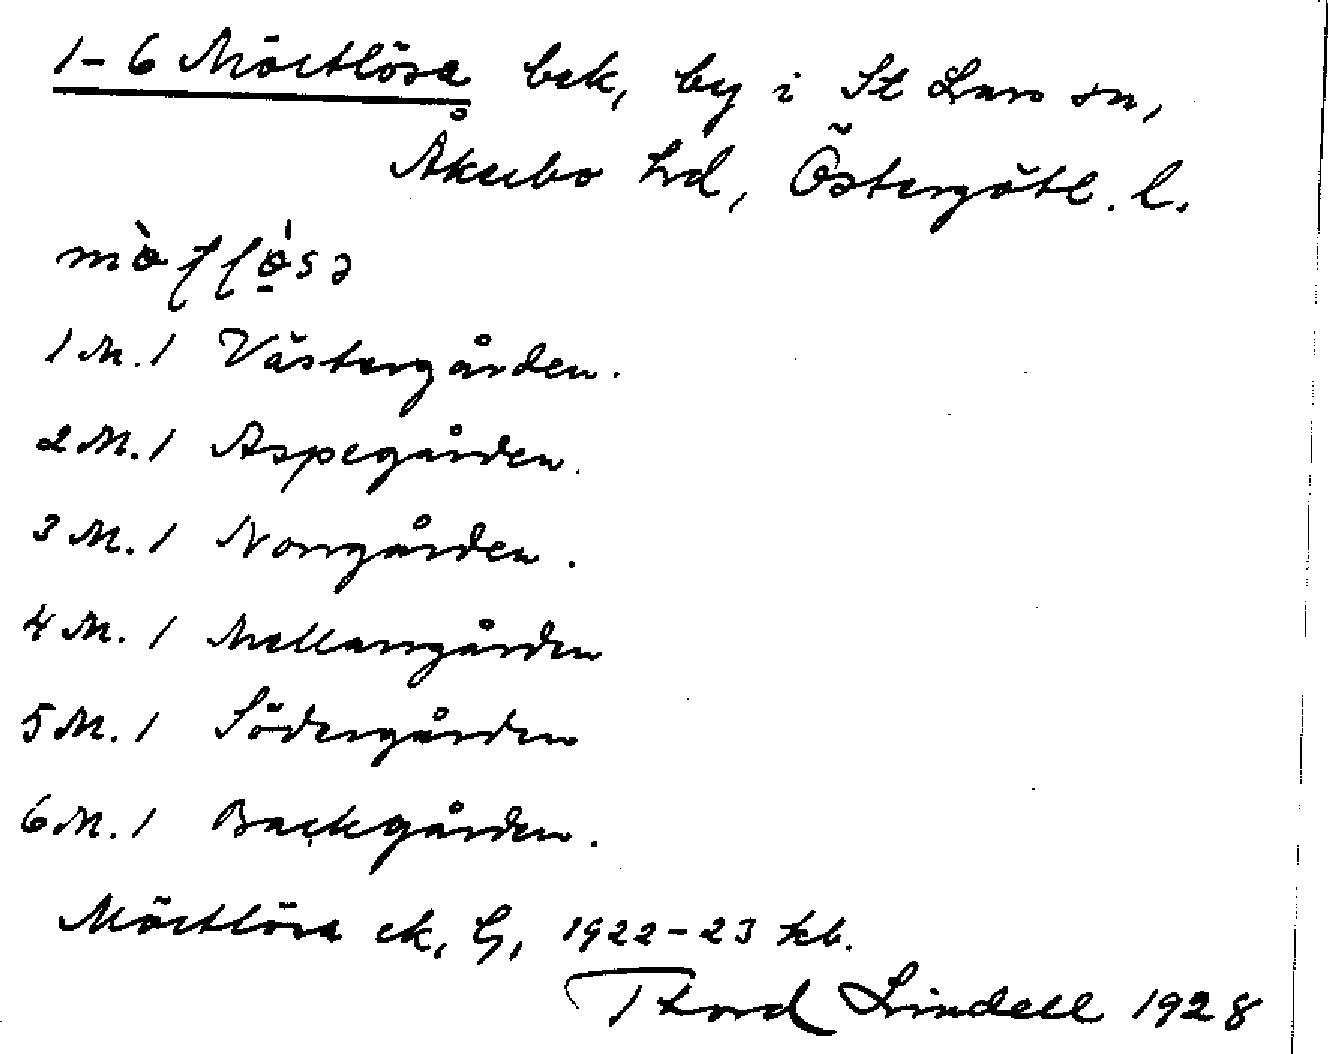 1-6 Möctlösa bek, by i St Lars sn,
Åkerbo hd, Östergötl. l.
1 M. 1 Västergården.
2 M. 1 Aspegården.
3 M. 1 Norrgården.
4 M. 1 Mellangården
5 M. 1 Södergården
6 M. 1 Backgården.
Möctlösa ek, G, 1922-23 kb.
Thord Lindell 1928